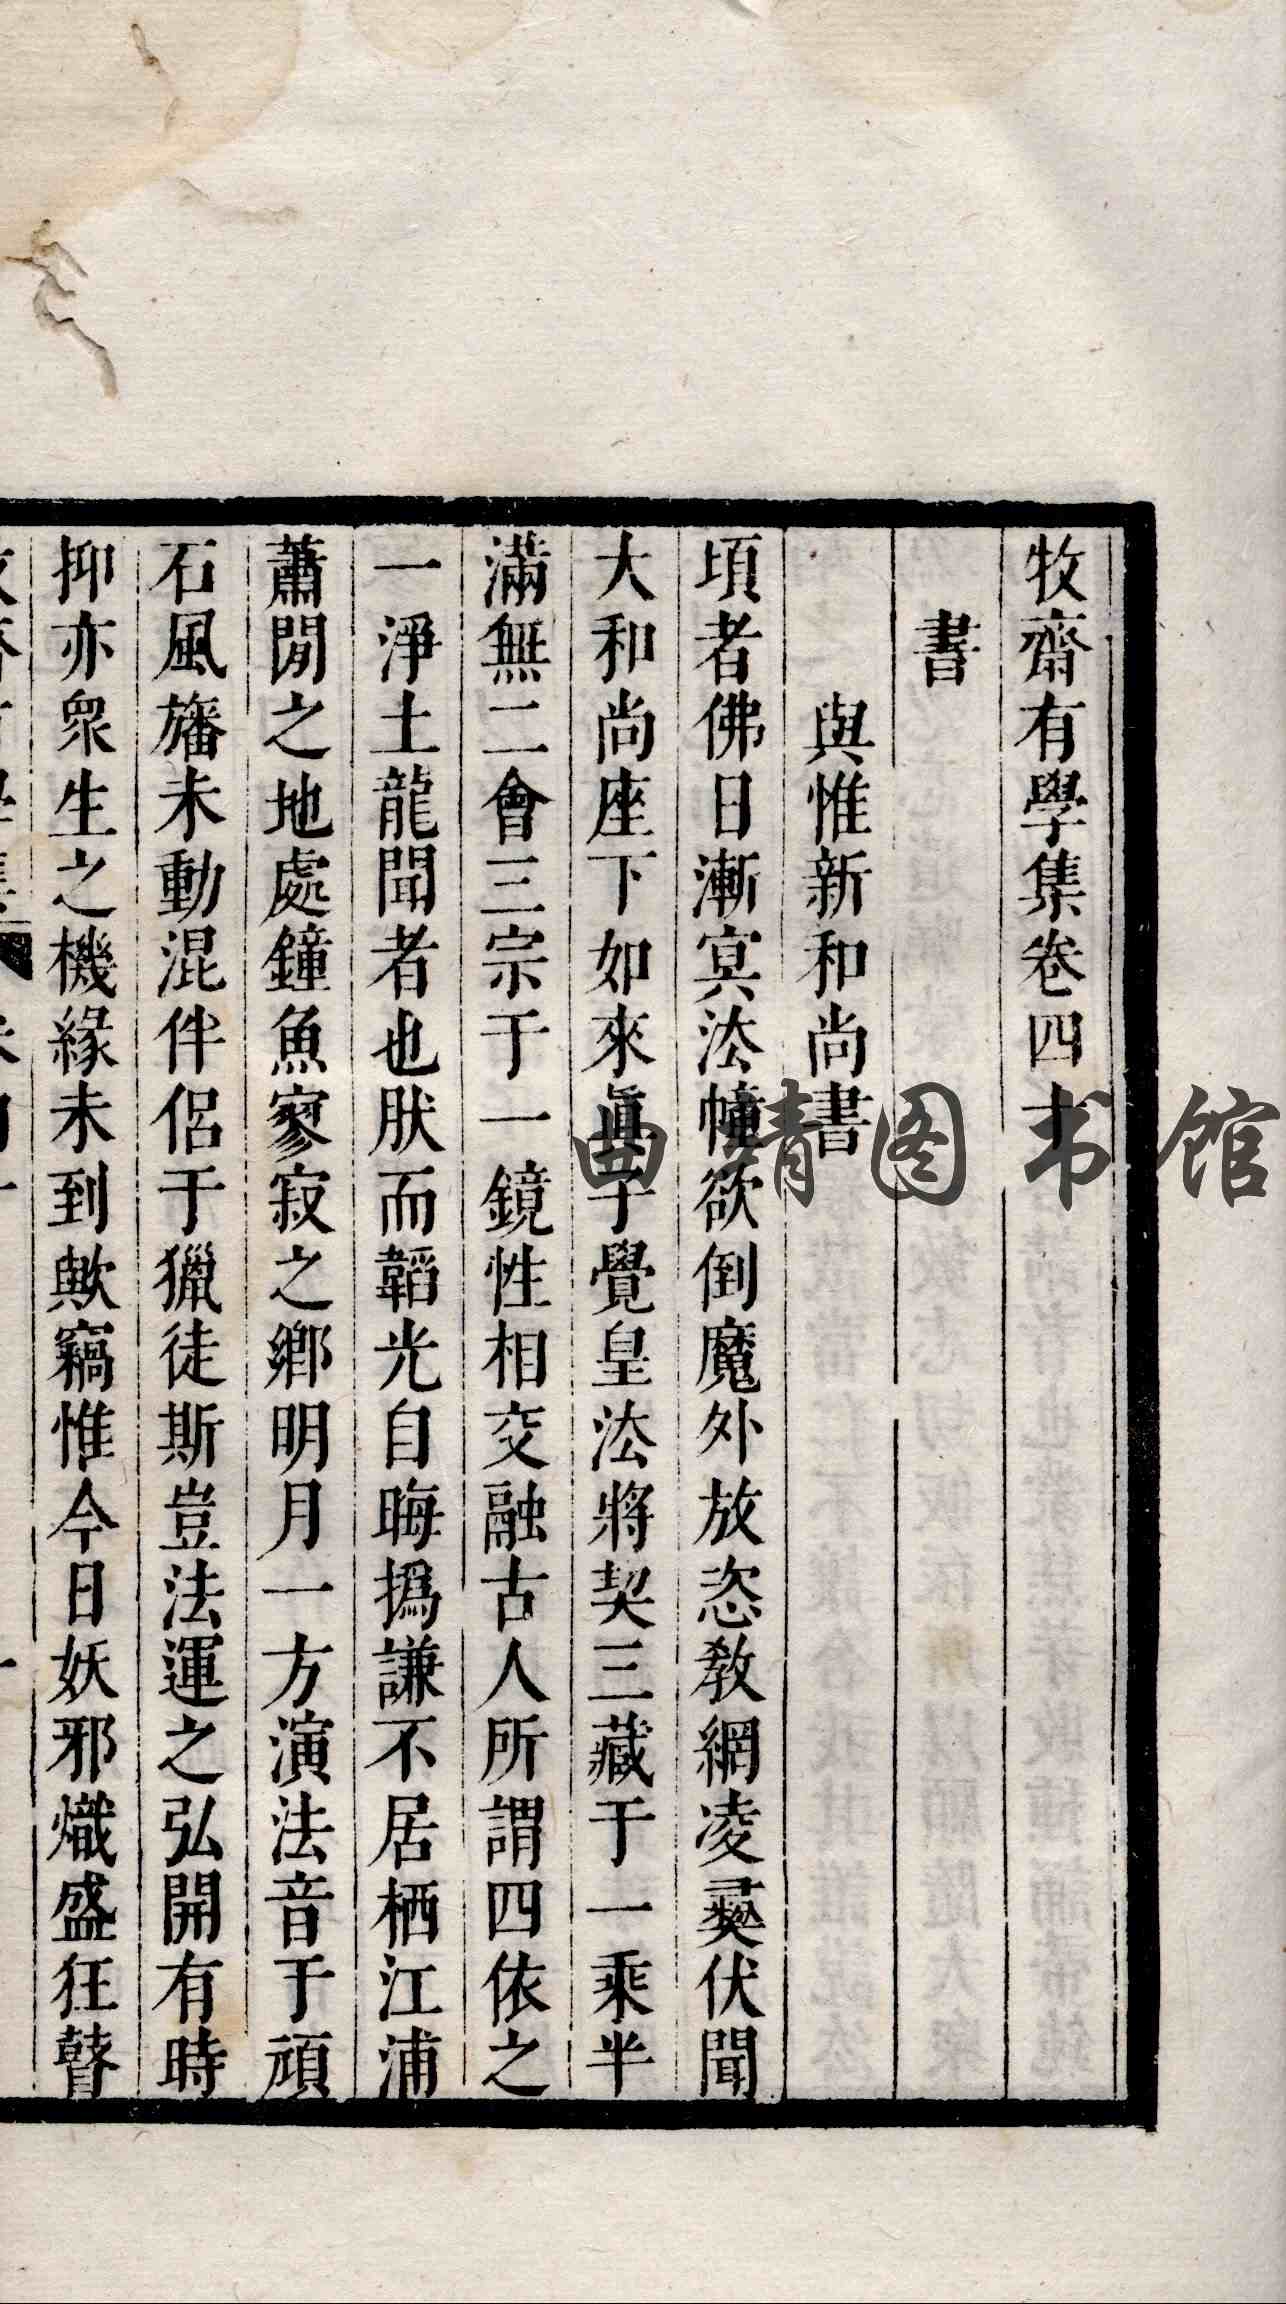 牧齋有學集卷四十
書
與惟新和尚書
頃者佛日漸冥法幢欲倒魔外放恣教網凌彛伏聞
大和尚座下如來眞子覺皇法將契三藏于一乘半
滿無二會三宗于一鏡性相交融古人所謂四依之
一淨土龍聞者也肰而韜光自晦撝謙不居栖江浦
蕭閒之地處鐘魚寥寂之鄉明月一方演法音于頑
石風旛未動混伴侶于獵徒斯豈法運之弘開有時
抑亦衆生之機緣未到歟竊惟今日妖邪熾盛狂瞽
曲靖图书馆